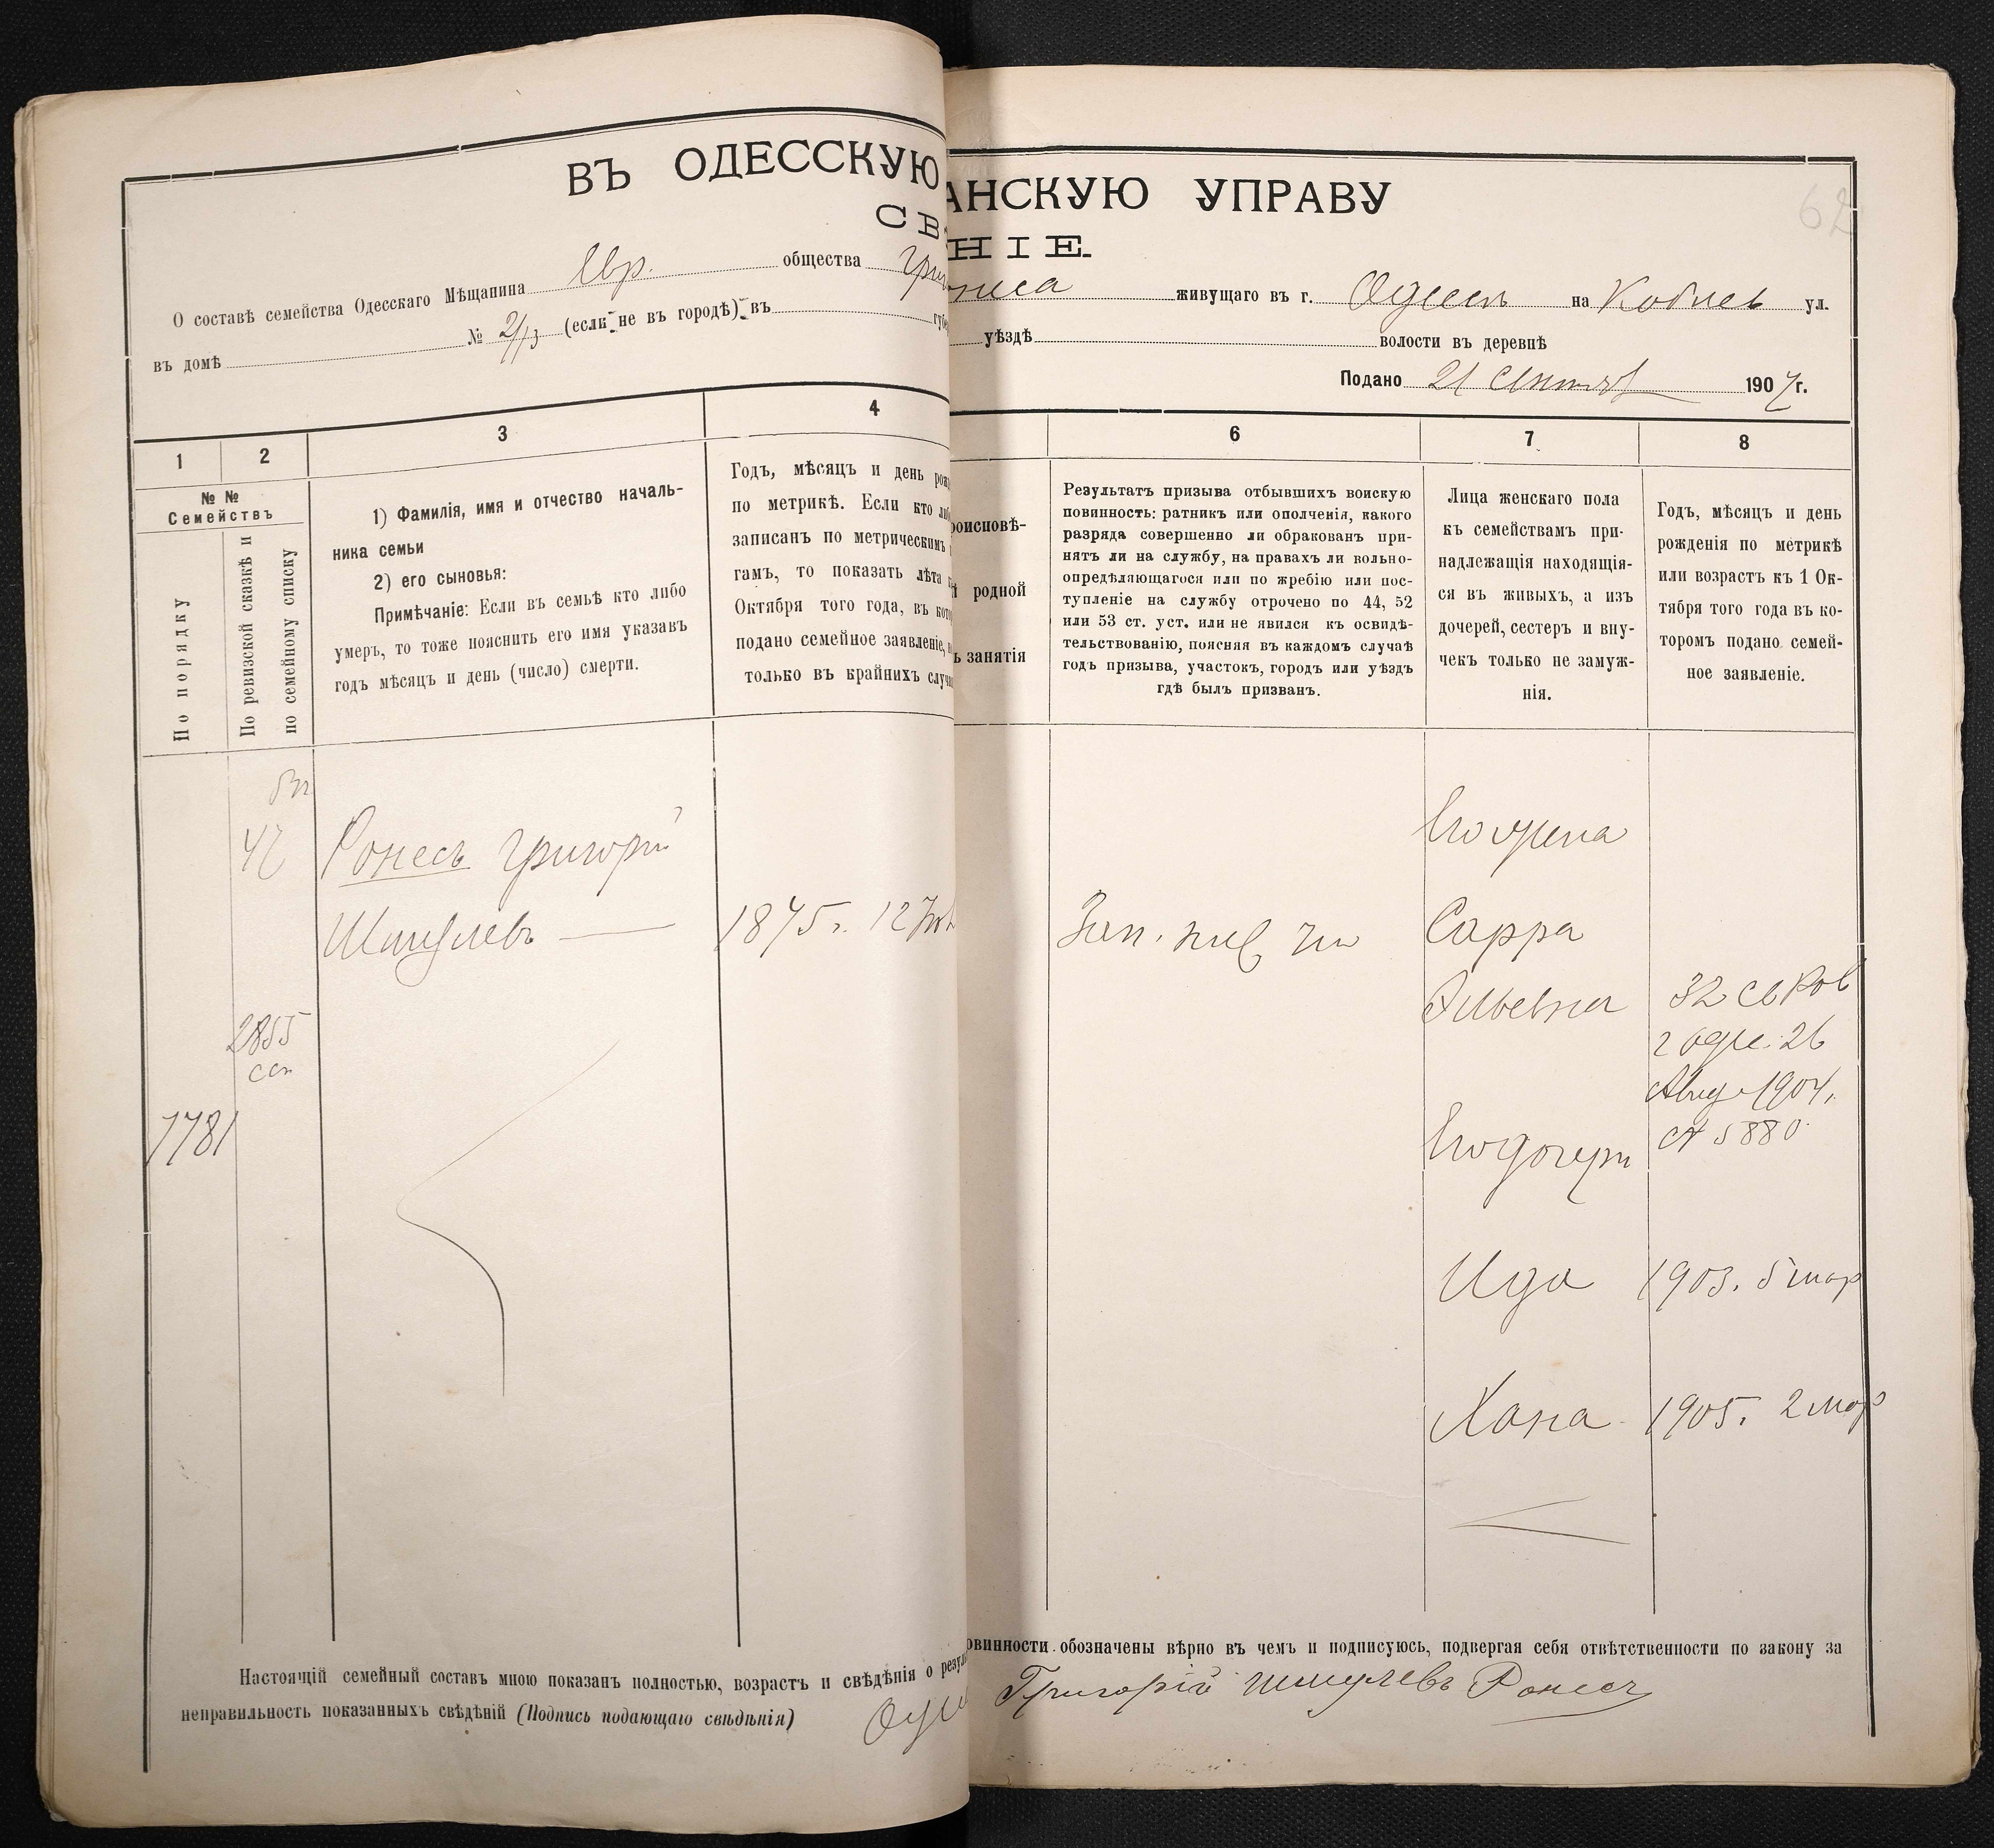 ВЪ ОДЕССКУЮ
АНСКУЮ УПРАВУ
СВ
НІЕ.
62
О составѣ семейства Одесскаго Мѣщанина Евр. общества Гри
въ домѣ № 2/13 (если не въ городѣ) въ губ
неса живущаго въ г. Одессѣ на Коблев ул.
уѣздѣ волости въ деревнѣ
Подано 21 Сентяб 1907 г.
1
2
3
4
№ №
Семействъ
По порядку
По ревизской сказкѣ и
по семейному списку
1) Фамилія, имя и отчество началь-
ника семьи
2) его сыновья:
Примѣчаніе: Если въ семьѣ кто либо
умеръ, то тоже пояснить его имя указавъ
годъ мѣсяцъ и день (число) смерти.
Годъ, мѣсяцъ и день рож
по метрикѣ. Если кто либ
записанъ по метрическимъ
гамъ, то показать лѣта
Октября того года, въ кот
подано семейное заявленіе,
только въ крайнихъ случ
роисповѣ-
родной
ъ занятія
6
7
8
Результатъ призыва отбывшихъ воискую
повинность: ратникъ или ополченія, какого
разряда совершенно ли обракованъ при-
нятъ ли на службу, на правахъ ли вольно-
опредѣляющагося или по жребію или пос-
тупленіе на службу отрочено по 44, 52
или 53 ст. уст. или не явился къ освидѣ-
тельствованію, поясняя въ каждомъ случаѣ
годъ призыва, участокъ, городъ или уѣздъ
гдѣ былъ призванъ.
Лица женскаго пола
къ семействамъ при-
надлежащія находящія-
ся въ живыхъ, а изъ
дочерей, сестеръ и вну-
чекъ только не замуж-
нія.
Годъ, мѣсяцъ и день
рожденія по метрикѣ
или возрастъ къ 1 Ок-
тября того года въ ко-
торомъ подано семей-
ное заявленіе.
Ронесъ Григорій
Шмулевъ — 1875 г. 12
2855
1781
Зап.
Его жена
Сарра
Эльевна
32 св Рав
г Одес. 26
Авг 1904.
№ 5880
Его дочери
Ида 1903. 5 мар
Хана 1905. 2 мар
Настоящій семейный составъ мною показанъ полностью, возрастъ и свѣдѣнія о резул
неправильность показанныхъ свѣдѣній (Подпись подающаго свѣдѣнія)
овинности обозначены вѣрно въ чемъ и подписуюсь, подвергая себя отвѣтственности по закону за
Григорій Шмулевъ Ронесъ